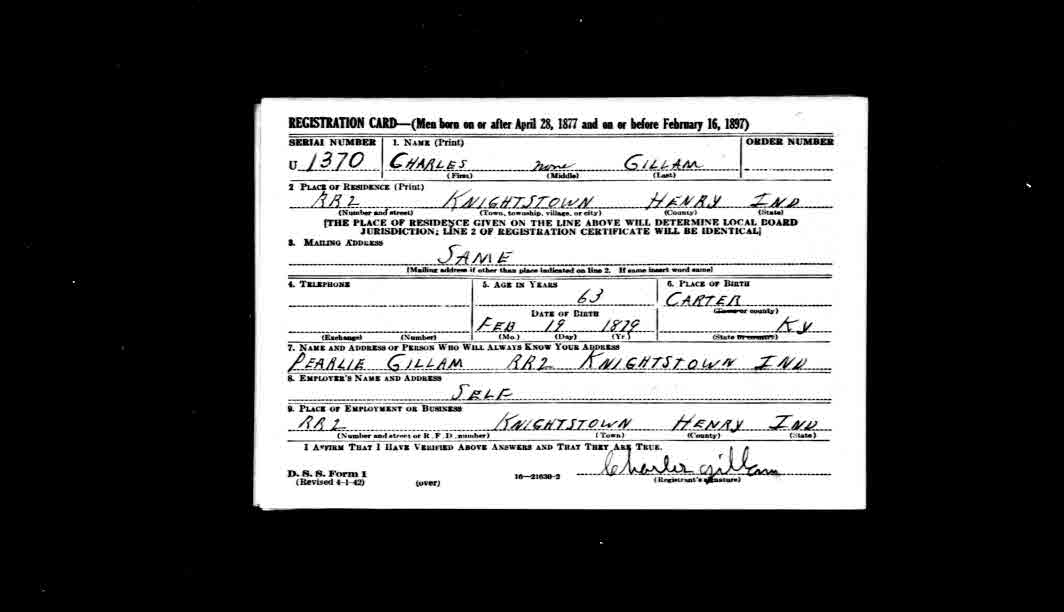 REGISTRATION CARD—(Men born on or after April 28, 1877 and on or before February 16, 1897)
SERIAL NUMBER 1. NAME (Print) ORDER NUMBER
U 1370 CHARLES none GILLAM
(First) (Middle) (Last)
2 PLACE OF RESIDENCE (Print)
RR2 KNIGHTSTOWN HENRY IND
(Number and street) (Town, township, village, or city) (County) (State)
[THE PLACE OF RESIDENCE GIVEN ON THE LINE ABOVE WILL DETERMINE LOCAL BOARD
JURISDICTION; LINE 2 OF REGISTRATION CERTIFICATE WILL BE IDENTICAL]
3. MAILING ADDRESS
SAME
[Mailing address if other than place indicated on line 2. If same insert word same]
4. TELEPHONE 5. AGE IN YEARS 6. PLACE OF BIRTH
63 CARTER
DATE OF BIRTH (Town or county)
FEB 19 1879 KY
(Exchange) (Number) (Mo.) (Day) (Yr.) (State or country)
7. NAME AND ADDRESS OF PERSON WHO WILL ALWAYS KNOW YOUR ADDRESS
PEARLIE GILLAM RR2 KNIGHTSTOWN IND
8. EMPLOYER'S NAME AND ADDRESS
SELF
9. PLACE OF EMPLOYMENT OR BUSINESS
RR2 KNIGHTSTOWN HENRY IND
(Number and street or R. F. D. number) (Town) (County) (State)
I AFFIRM THAT I HAVE VERIFIED ABOVE ANSWERS AND THAT THEY ARE TRUE.
Charles Gillam
D. S. S. Form 1
(Revised 4-1-42) (over) 16—21630-2 (Registrant's signature)